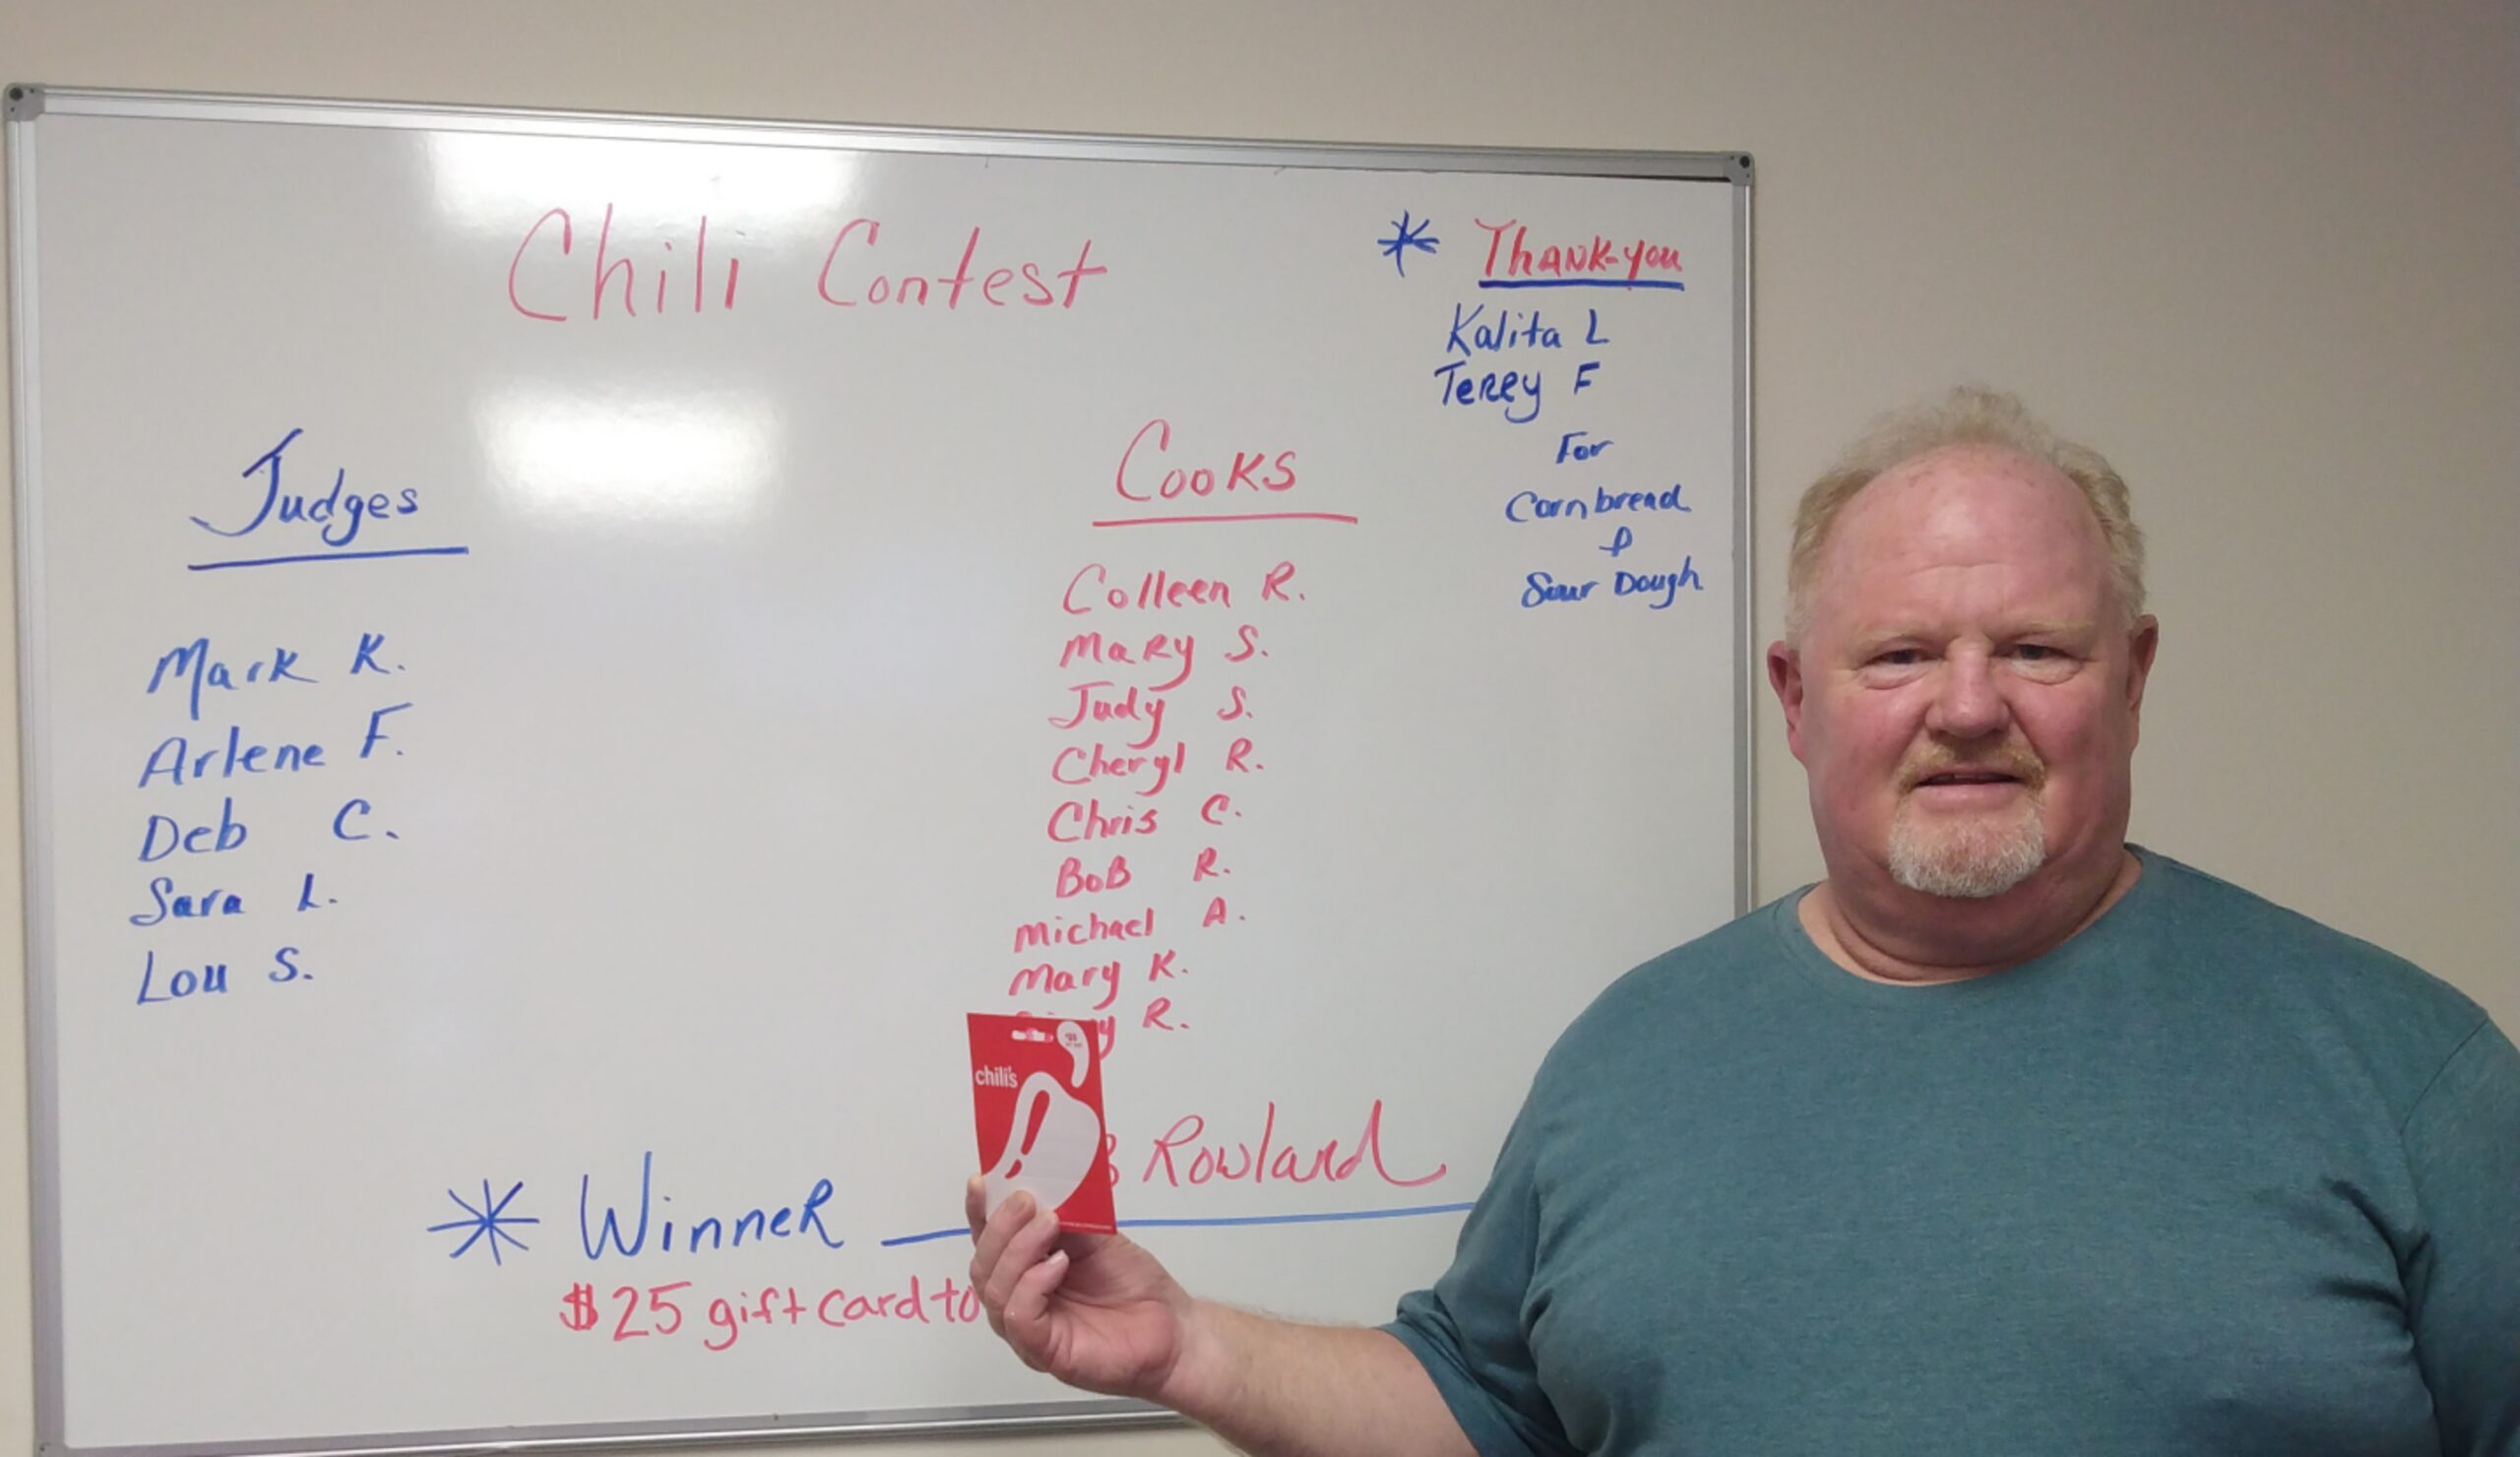 Chili Contest
* Thank-you
Kalita L
Terry F
For
Cornbread
&
Sour Dough
Judges
Mark K.
Arlene F.
Deb C.
Sara L.
Lou S.
Cooks
Colleen R.
Mary S.
Judy S.
Cheryl R.
Chris C.
BoB R.
Michael A.
Mary K.
R.
chili's
* Winner Rowland
$25 gift card to